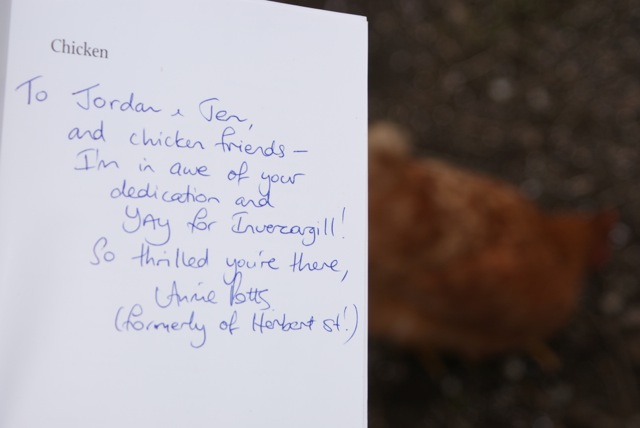 Chicken
To Jordan & Jen,
and chicken friends –
I'm in awe of your
dedication and
YAY for Invercargill!
So thrilled you're there,
Annie Potts
(formerly of Herbert st!)